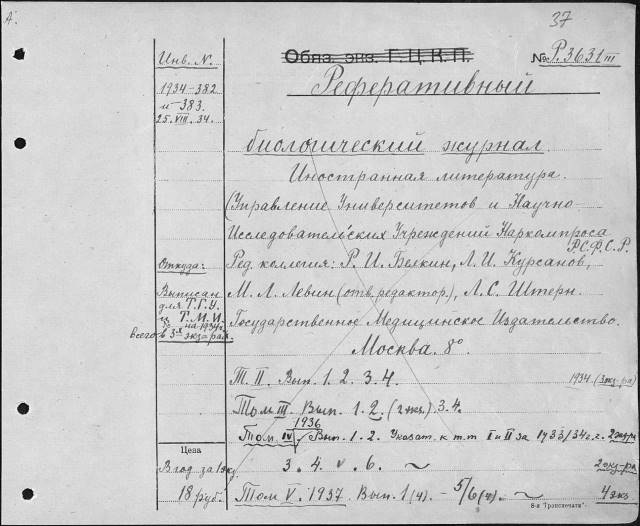 А.
37
Инв. N.
Обяз. экз. Г.Ц.К.П.
№ Р.3631 III
1934-382
и -383.
25.VIII.34.
Реферативный
биологический журнал.
Иностранная литература.
(Управление Университетов и Научно-
Исследовательских Учреждений Наркомпроса
Р.С.Ф.С.Р.
Откуда:
Ред. коллегия: Р. И. Белкин, Л. И. Курсанов,
Выписан
для Т.Г.У.
и Т.М.И.
на 1934г.
всего в 3х экз=рах.
М. Л. Левин (отв. редактор.), Л. С. Штерн.
Государственное Медицинское Издательство.
Москва. 8°.
Т. II. Вып. 1. 2. 3. 4. 1934. (3 экз-ра)
Том III. Вып. 1. 2. (2 экз.) 3. 4.
1936
Том. IV. Вып. 1. 2. Указат. к т.т I и II за 1933/34 г.г. 2 экз-ра
Цена
В год за 1 экз.
3. 4. 6. ~ 2 экз-ра
18 руб.
Том V. 1937. Вып. 1 (4). - 5/6 (4). ~ 4 экз.
8-я "Транспечати".